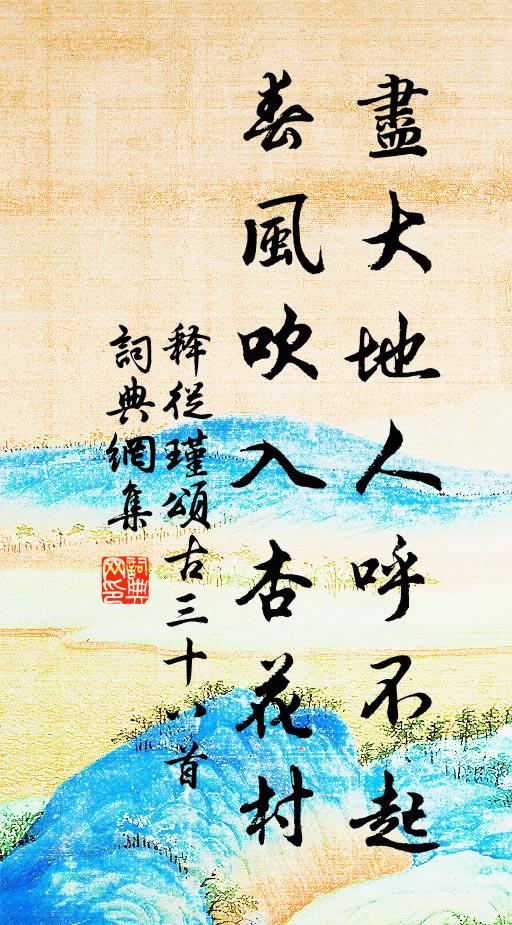 盡大地人呼不起
春風吹入杏花村
释從瑾頌古三十八首
詞典網集
詞典網印